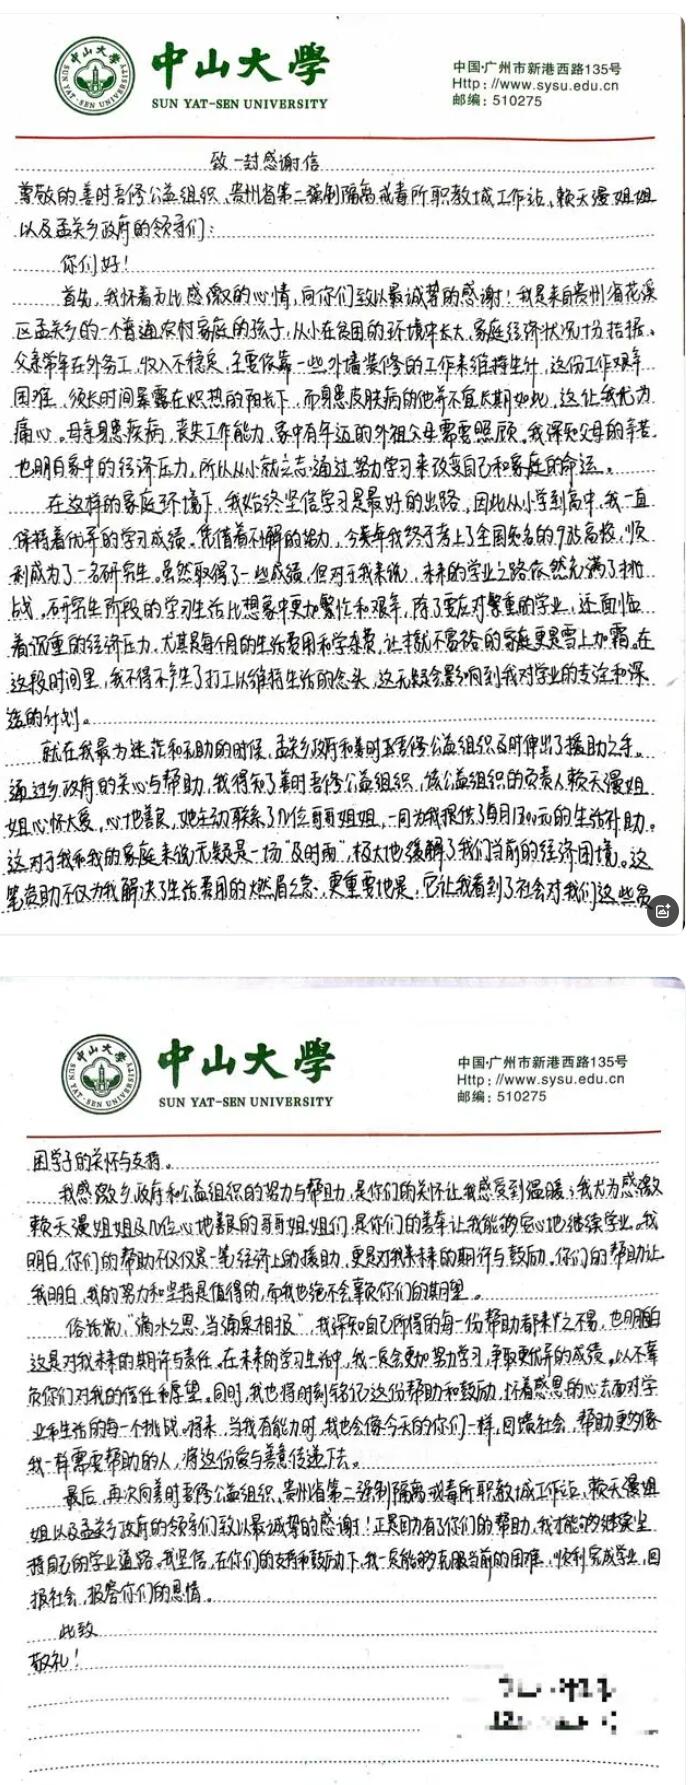 中山大学
SUN YAT-SEN UNIVERSITY
中山大学
SUN YAT-SEN UNIVERSITY
中国·广州市新港西路135号
Http://www.sysu.edu.cn
邮编：510275
致一封感谢信
尊敬的善时吾修公益组织、贵州省第二强制隔离戒毒所职教城工作站、赖天漫姐姐
以及孟关乡政府的领导们：
你们好！
首先，我怀着无比感激的心情，向你们致以最诚挚的感谢！我是来自贵州省花溪
区孟关乡的一个普通农村家庭的孩子，从小在贫困的环境中长大，家庭经济状况十分拮据。
父亲常年在外务工，收入不稳定，主要依靠一些外墙装修的工作来维持生计，这份工作艰辛
困难，须长时间暴露在炽热的阳光下，而身患皮肤病的他并不宜长期如此，这让我尤为
痛心。母亲身患疾病，丧失工作能力，家中有年迈的外祖父母需要照顾。我深知父母的辛苦，
也明白家中的经济压力，所以从小就立志通过努力学习来改变自己和家庭的命运。
在这样的家庭环境下，我始终坚信学习是最好的出路，因此从小学到高中，我一直
保持着优异的学习成绩。凭借着不懈的努力，今年我终于考上了全国知名的985高校，顺
利成为了一名研究生。虽然取得了一些成绩，但对于我来说，未来的学业之路依然充满了挑
战。研究生阶段的学习生活比想象中更加繁忙和艰辛，除了要应对繁重的学业，还面临
着沉重的经济压力，尤其是每个月的生活费用和学杂费，让本就不富裕的家庭更是雪上加霜。在
这段时间里，我不得不产生了打工以维持生活的念头，这无疑会影响到我对学业的专注和深
造的计划。
就在我最为迷茫和无助的时候，孟关乡政府和善时吾修公益组织及时伸出了援助之手。
通过乡政府的关心与帮助，我得知了善时吾修公益组织，该公益组织的负责人赖天漫姐
姐心怀大爱，心地善良，她主动联系了几位哥哥姐姐，一同为我提供了每月1300元的生活补助。
这对于我和我的家庭来说无疑是一场“及时雨”，极大地缓解了我们当前的经济困境。这
笔资助不仅为我解决了生活费用的燃眉之急，更重要地是，它让我看到了社会对我们这些贫
中山大学
SUN YAT-SEN UNIVERSITY
中山大学
SUN YAT-SEN UNIVERSITY
中国·广州市新港西路135号
Http://www.sysu.edu.cn
邮编：510275
困学子的关怀与支持。
我感激乡政府和公益组织的努力与帮助，是你们的关怀让我感受到温暖；我尤为感激
赖天漫姐姐及几位心地善良的哥哥姐姐们，是你们的善举让我能够安心地继续学业。我
明白，你们的帮助不仅仅是一笔经济上的援助，更是对我未来的期许与鼓励。你们的帮助让
我明白，我的努力和坚持是值得的，而我也绝不会辜负你们的期望。
俗话说，“滴水之恩，当涌泉相报”，我深知自己所得的每一份帮助都来之不易，也明白
这是对我未来的期许与责任。在未来的学习生活中，我一定会更加努力学习，争取更优异的成绩，以不辜
负你们对我的信任和厚望。同时，我也将时刻铭记这份帮助和鼓励，怀着感恩的心去面对学
业和生活的每一个挑战。将来，当我有能力时，我也会像今天的你们一样，回馈社会，帮助更多像
我一样需要帮助的人，将这份爱与善意传递下去。
最后，再次向善时吾修公益组织、贵州省第二强制隔离戒毒所职教城工作站、赖天漫姐
姐以及孟关乡政府的领导们致以最诚挚的感谢！正是因为有了你们的帮助，我才能够继续坚
持自己的学业道路。我坚信，在你们的支持和鼓励下，我一定能够克服当前的困难，顺利完成学业，回
报社会，报答你们的恩情。
此致
敬礼！